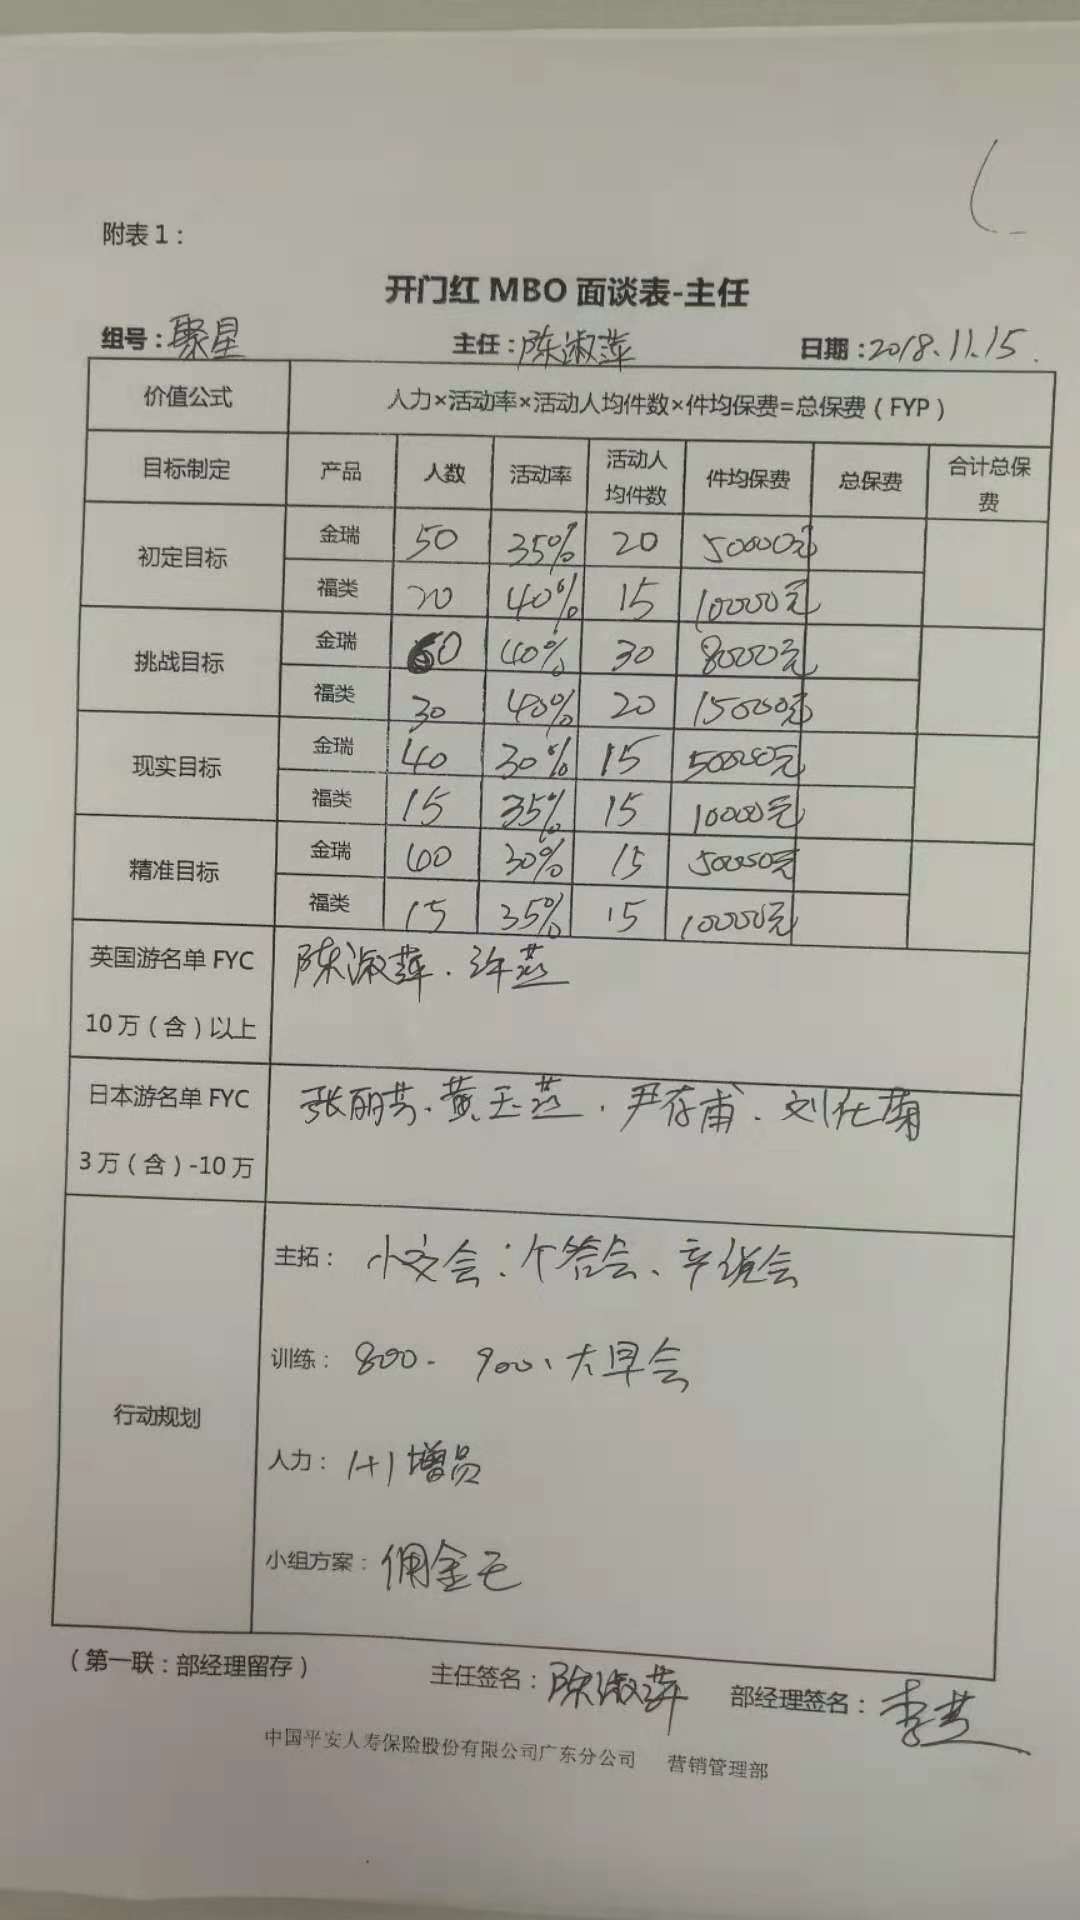 附表1：
开门红 MBO 面谈表-主任
组号：聚星 主任：陈淑萍 日期：2018.11.15.
价值公式 人力×活动率×活动人均件数×件均保费=总保费（FYP）
目标制定 产品 人数 活动率 活动人均件数 件均保费 总保费 合计总保费
初定目标 金瑞 50 35% 20 50000元
福类 20 40% 15 10000元
挑战目标 金瑞 60 40% 30 80000元
福类 30 40% 20 15000元
现实目标 金瑞 40 30% 15 50000元
福类 15 35% 15 10000元
精准目标 金瑞 30% 15 50000元
福类 15 35% 15 10000元
英国游名单 FYC 陈淑萍、许燕
10万（含）以上
日本游名单 FYC 张丽芳、黄玉燕、尹存甫、刘仕菊
3万（含）-10万
行动规划
主拓： 小交会：个答会、
训练： 800- 900、大早会
人力： 1+1增员
小组方案： 佣金
（第一联：部经理留存） 主任签名：陈淑萍 部经理签名：李
中国平安人寿保险股份有限公司广东分公司 营销管理部